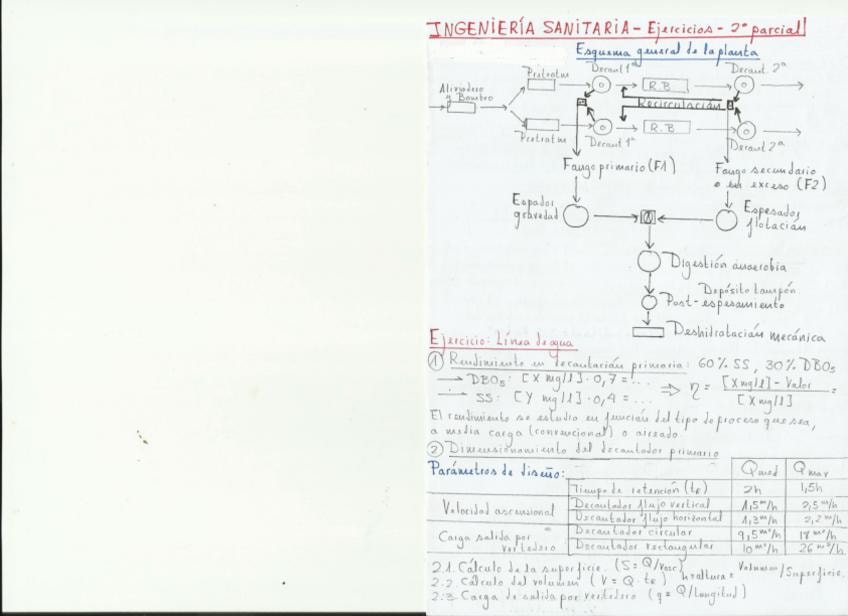 INGENIERÍA SANITARIA - Ejercicios - 2º parcial
Esquema general de la planta
Aliviadero y Bombeo
Pretratm
Decant 1ª
R.B
Decant. 2ª
Recirculación
Pretratm
Decant 1ª
R.B
Decant 2ª
Fango primario (F1)
Fango secundario
o en exceso (F2)
Espador
gravedad
Espesador
flotación
Digestión anaerobia
Depósito tampón
Post-espesamiento
Deshidratación mecánica
Ejercicio: Línea de agua
① Rendimiento en decantación primaria: 60% SS, 30% DBO5
→ DBO5: [X mg/l] · 0,7 = ... ⇒ η = [X mg/l] - Valor / [X mg/l] =
→ SS: [Y mg/l] · 0,4 = ...
El rendimiento se estudia en función del tipo de proceso que sea,
a media carga (convencional) o aireado
② Dimensionamiento del decantador primario
Parámetros de diseño: Qmed Qmax
Tiempo de retención (tR) 2h 1,5h
Velocidad ascensional Decantador flujo vertical 1,5 m/h 2,5 m/h
Decantador flujo horizontal 1,3 m/h 2,2 m/h
Carga salida por vertedero Decantador circular 9,5 m³/h 18 m³/h
Decantador rectangular 10 m³/h 26 m³/h
2.1. Cálculo de la superficie. (S = Q/Vasc)
2.2. Cálculo del volumen (V = Q · tR) h=altura = Volumen/Superficie
2.3 Carga de salida por vertedero (q = Q/Longitud)